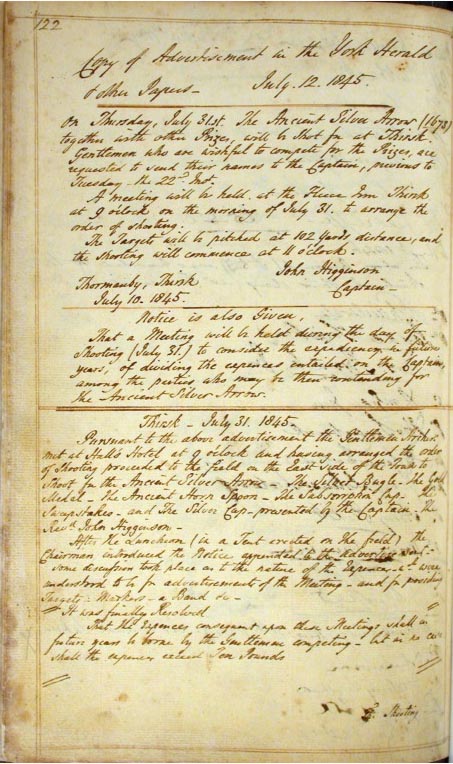 122
Copy of Advertisement in the York Herald
& other Papers - July. 12. 1845.
On Thursday, July 31st. The Ancient Silver Arrow (1673)
together with other Prizes, will be Shot for at Thirsk.
Gentlemen who are wishful to compete for the Prizes, are
requested to send their names to the Captain, previous to
Tuesday the 22d Inst.
A meeting will be held, at the Fleece Inn Thirsk
at 9 o'clock on the morning of July 31. to arrange the
order of shooting.
The Targets will be pitched at 102 Yards distance, and
the Shooting will commence at 11 o'clock.
John Higginson
Thormanby, Thirsk Captain -
July 10. 1845.
Notice is also Given,
That a Meeting will be held during the day of
Shooting (July 31.) to consider the expediency in future
years, of dividing the expences entailed on the Captain,
among the parties who may be then contending for
the Ancient Silver Arrow.
Thirsk - July 31. 1845.
Pursuant to the above advertisement the Gentlemen Archers
met at Hall's Hotel at 9 o'clock and having arranged the order
of Shooting proceeded to the field on the East Side of the Town to
Shoot for the Ancient Silver Arrow - The Silver Bugle - The Gold
Medal - The Ancient Horn Spoon - The Subscription Cup - the
Sweepstakes - and The Silver Cup - presented by the Captain - the
Revd. John Higginson -
After the Luncheon (in a Tent erected on the field) the
Chairman introduced the Notice appended to the advertisement -
some discussion took place as to the nature of the Expences - wt. were
understood to be for advertisement of the Meeting - and for providing
Targets - Markers - a Band &c -
It was finally Resolved
That the Expences consequent upon these Meetings shall in
future years be borne by the Gentlemen competing - but in no case
shall the expences exceed Ten Pounds
Shooting